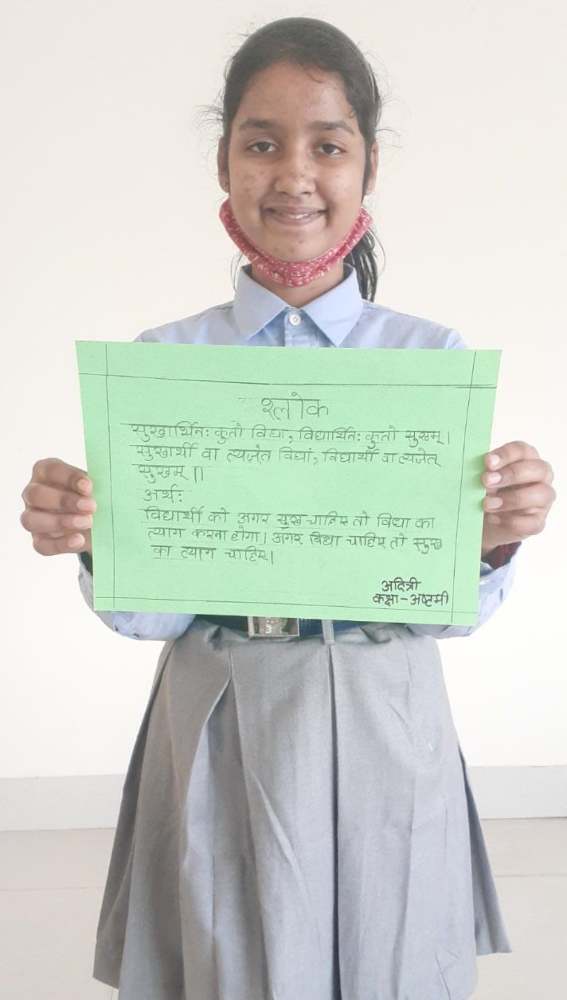 श्लोक
सुखार्थिनः कुतो विद्या, विद्यार्थिनः कुतो सुखम्।
सुखार्थी वा त्यजेत विद्यां, विद्यार्थी वा त्यजेत्
सुखम्।।
अर्थ:
विद्यार्थी को अगर सुख चाहिए तो विद्या का
त्याग करना होगा। अगर विद्या चाहिए तो सुख
का त्याग चाहिए।
अदित्री
कक्षा-अष्टमी